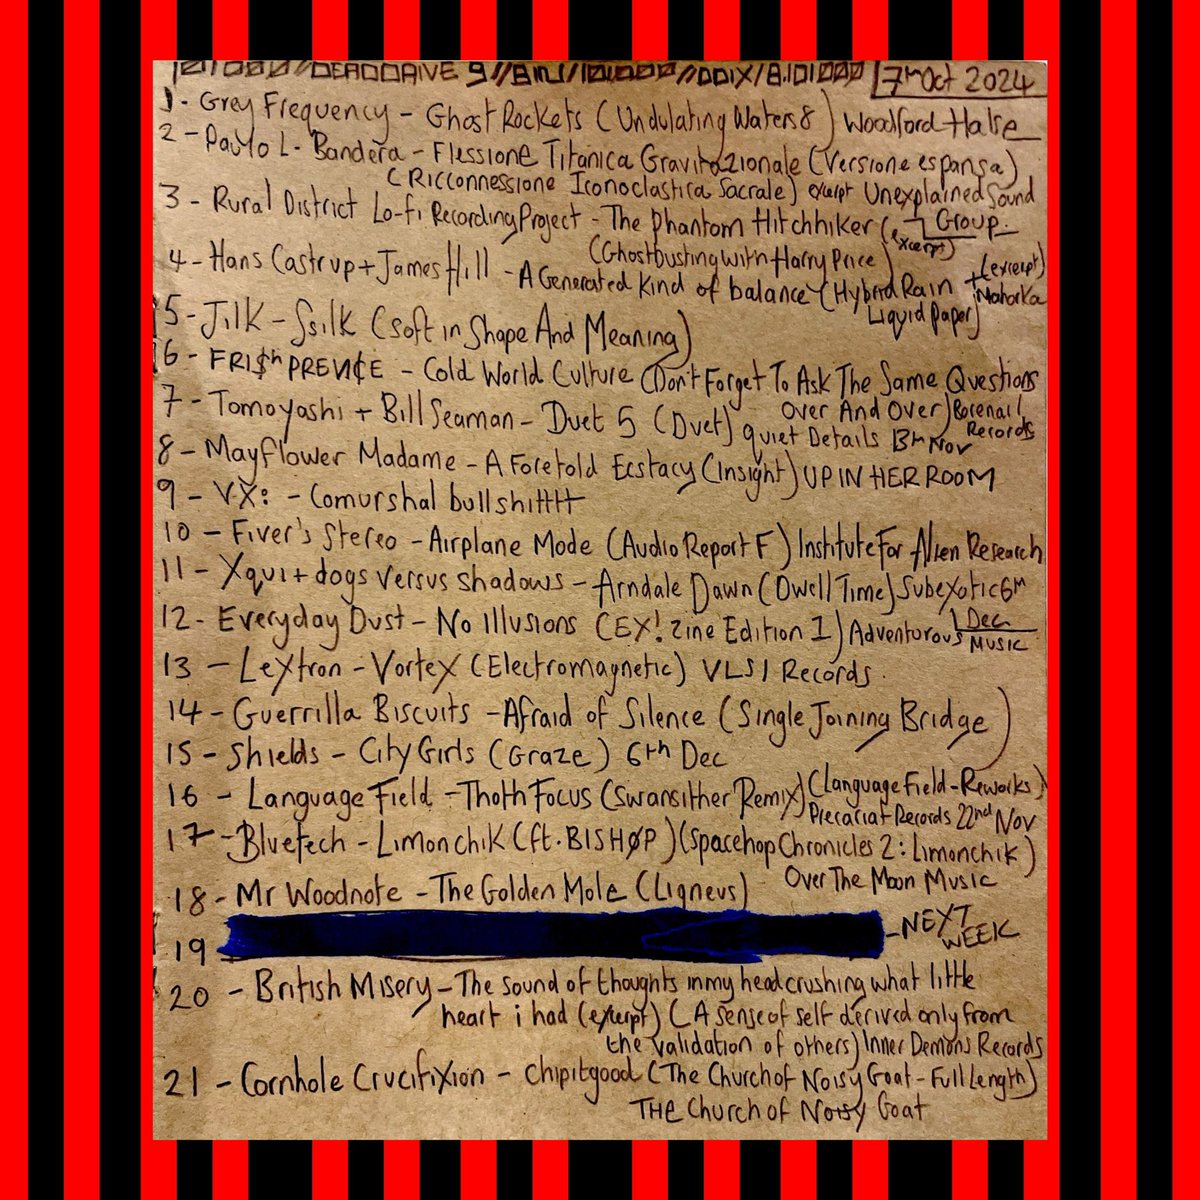 7th Oct 2024
1 - Grey Frequency - Ghost Rockets (Undulating Waters 8) Woodford Halse
2 - Paulo L. Bandera - Flessione Titanica Gravitazionale (Versione espansa)
(Ricconnessione Iconoclastica Sacrale) excerpt Unexplained Sound
Group
3 - Rural District Lo-fi Recording Project - The Phantom Hitchhiker (excerpt)
(Ghostbusting with Harry Price)
4 - Hans Castrup + James Hill - A Generated Kind of balance (excerpt)
(Hybrid Rain + Liquid Paper) Mahorka
5 - Jilk - Ssilk (Soft in Shape And Meaning)
6 - FRI$h PREN¢E - Cold World Culture (Don't Forget To Ask The Same Questions
Over And Over) Borenail Records
7 - Tomoyashi + Bill Seaman - Duet 5 (Duet) quiet Details 13th Nov
8 - Mayflower Madame - A Foretold Ecstacy (Insight) UP IN HER ROOM
9 - VX: - Comurshal bullshitttt
10 - Fiver's Stereo - Airplane Mode (Audio Report F) Institute For Alien Research
11 - Xqui + dogs versus shadows - Arndale Dawn (Dwell Time) Subexotic 6th
Dec
12 - Everyday Dust - No Illusions (EX! Zine Edition 1) Adventurous Music
13 - Lextron - Vortex (Electromagnetic) VLSI Records.
14 - Guerrilla Biscuits - Afraid of Silence (Single Joining Bridge)
15 - Shields - City Girls (Graze) 6th Dec
16 - Language Field - Thoth Focus (Swansither Remix) (Language Field - Reworks)
Precariat Records 22nd Nov
17 - Bluetech - Limonchik (ft. BISHØP) (Spacehop Chronicles 2: Limonchik)
Over The Moon Music
18 - Mr Woodnote - The Golden Mole (Ligneus)
19 - NEXT WEEK
20 - British Misery - The sound of thoughts in my head crushing what little
heart i had (excerpt) (A sense of self derived only from
the validation of others) Inner Demons Records
21 - Cornhole Crucifixion - Chipitgood (The Church of Noisy Goat - Full Length)
THE Church of Noisy Goat